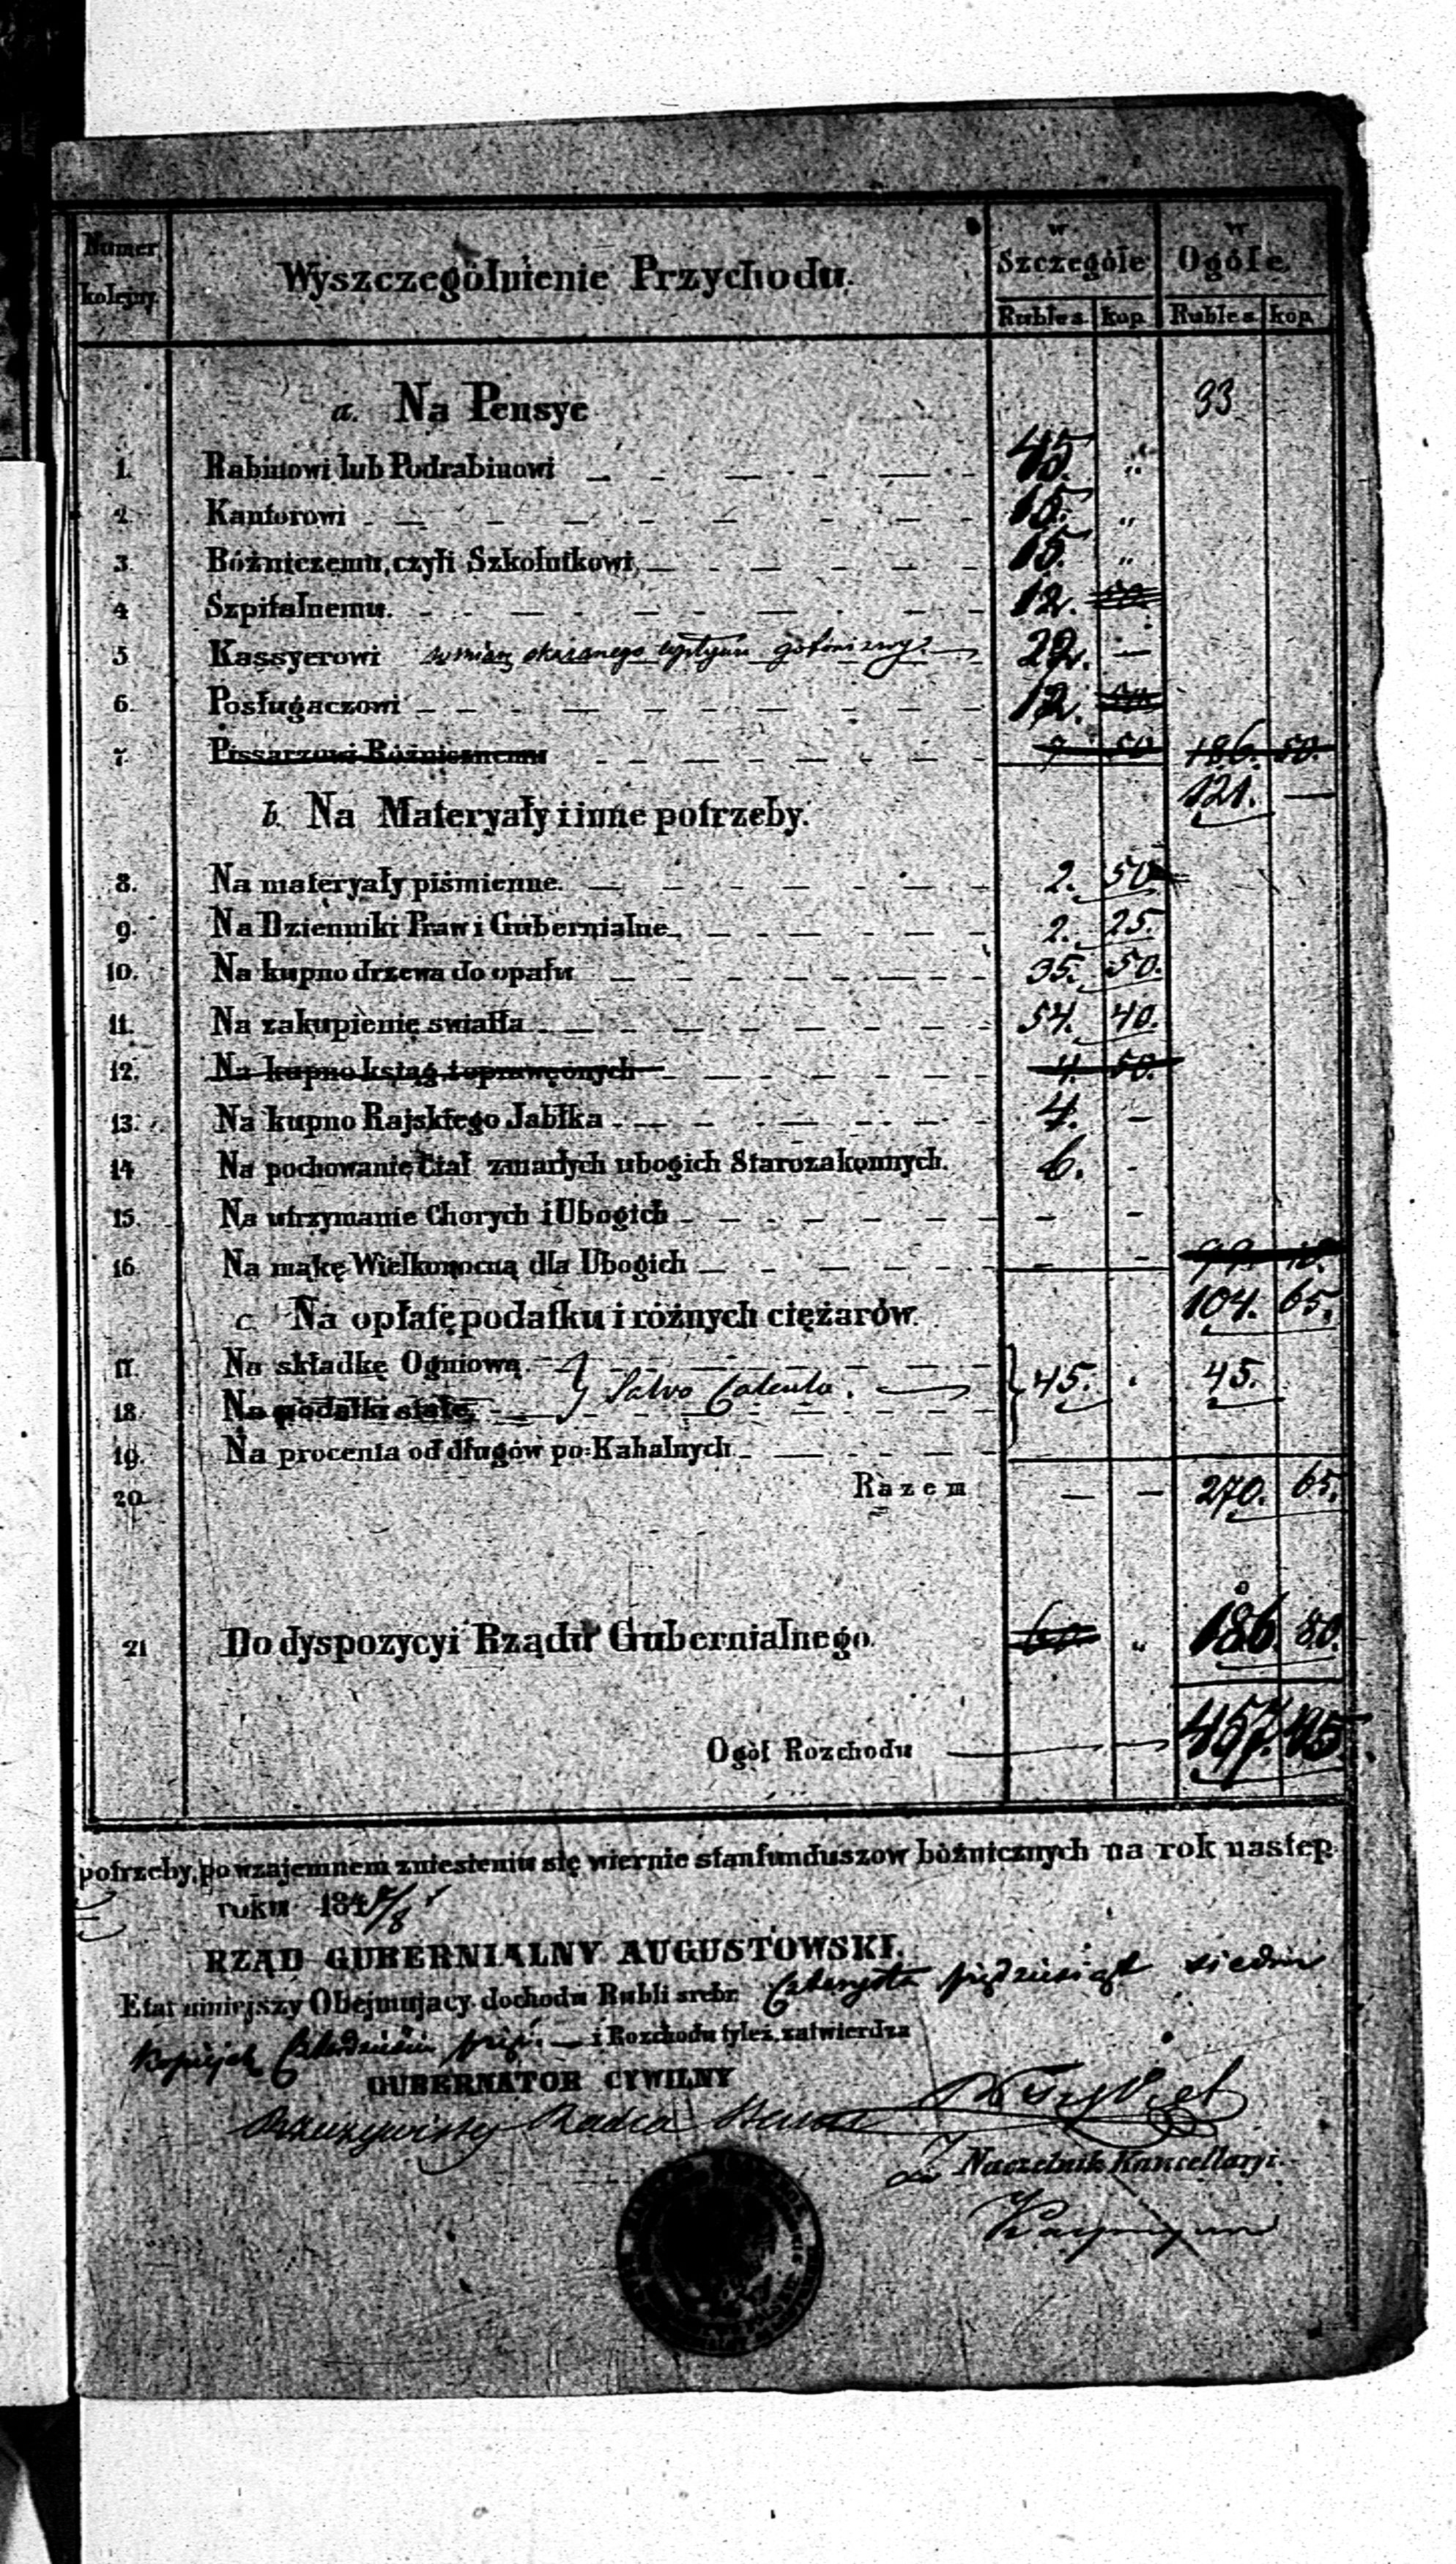 Numer kolejny. Wyszczególnienie Przychodu. w Szczególe w Ogóle.
Ruble s. kop. Ruble s. kop.
a. Na Pensye 33
1. Rabinowi lub Podrabinowi 45. "
2. Kantorowi 15. "
3. Bóżniczemu, czyli Szkolnikowi 15. "
4 Szpitalnemu. 12. 50
5 Kassyerowi w miarę okazanego wpływu 22. —
6. Posługaczowi 12.
7. Pissarzowi Bóżnicznemu 7 50 186. 50.
121. —
b. Na Materyały i inne potrzeby.
8. Na materyały piśmienne. 2. 50
9. Na Dzienniki Praw i Gubernialne 2. 25.
10. Na kupno drzewa do opału 35. 50.
11. Na zakupienie swiatła 54. 40.
12. Na kupno ksiąg i oprawę onych 4. 50.
13. Na kupno Rajskiego Jabłka 4. —
14 Na pochowanie Ciał zmarłych ubogich Starozakonnych. 6. -
15. Na utrzymanie Chorych i Ubogich - -
16. Na mąkę Wielkonocną dla Ubogich - - 99. 10.
c. Na opłatę podatku i różnych ciężarów. 104. 65.
17. Na składkę Ogniową
18. Na podatki stałe, Salvo Calculo. 45. 45.
19. Na procenta od długów po-Kahalnych
20. Razem — — 270. 65.
21 Do dyspozycyi Rządu Gubernialnego. 60 " 186. 80.
Ogół Rozchodu 457. 45.
potrzeby, po wzajemnem zniesieniu się wiernie stan funduszow bóżnicznych na rok następ.
roku 1847/8
RZĄD GUBERNIALNY AUGUSTOWSKI.
Etat niniejszy Obejmujący dochodu Rubli srebr. Czterysta pięćdziesiąt siedm
Kopiejek Czterdzieści pięć — i Rozchodu tyleż, zatwierdza
GUBERNATOR CYWILNY
Rzeczywisty Radca Stanu
Naczelnik Kancellaryi.